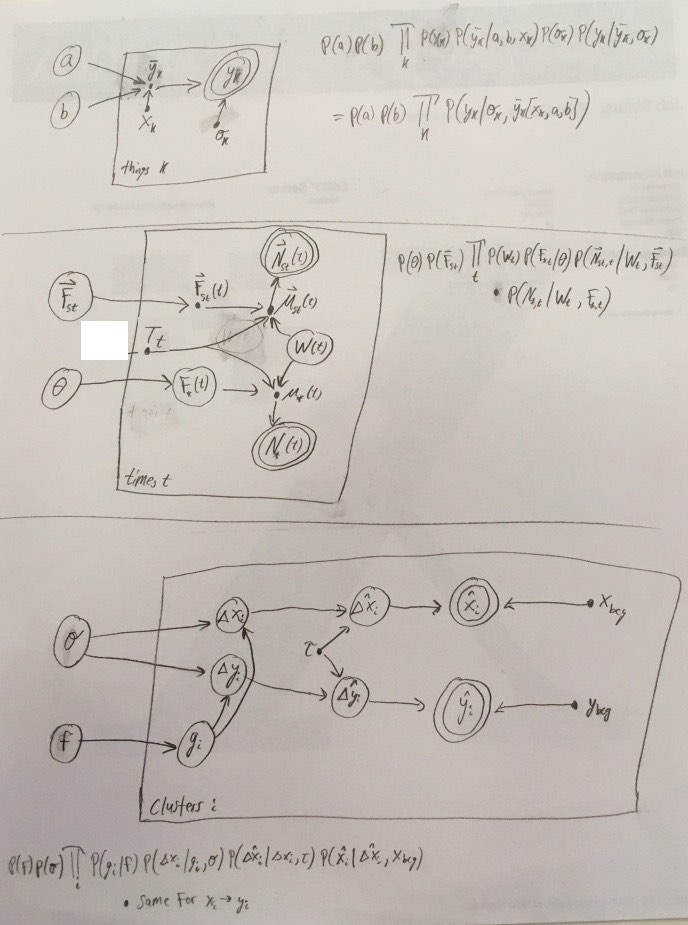 a
b
ȳₖ
yₖ
xₖ
σₖ
things k
P(a)P(b) ∏ₖ P(xₖ)P(ȳₖ|a,b,xₖ)P(σₖ)P(yₖ|ȳₖ,σₖ)
= P(a)P(b) ∏ₖ P(yₖ|σₖ, ȳₖ[xₖ,a,b])
N⃗ₛₜ(t)
F⃗ₛₜ
F⃗ₛₜ(t)
μ⃗ₛₜ(t)
Tₜ
W(t)
θ
F⁎(t)
μ⁎(t)
N⁎(t)
times t
P(θ)P(F⃗ₛₜ) ∏ₜ P(Wₜ)P(F⁎,ₜ|θ)P(N⃗ₛₜ,ₜ|Wₜ, F⃗ₛₜ)
• P(N⁎,ₜ|Wₜ, F⁎,ₜ)
σ
Δxᵢ
Δx̂ᵢ
x̂ᵢ
x_bcg
τ
Δyᵢ
Δŷᵢ
ŷᵢ
y_bcg
f
gᵢ
Clusters i
P(f)P(σ) ∏ᵢ P(gᵢ|f)P(Δxᵢ|gᵢ,σ)P(Δx̂ᵢ|Δxᵢ,τ)P(x̂ᵢ|Δx̂ᵢ, x_bcg)
• same for xᵢ → yᵢ